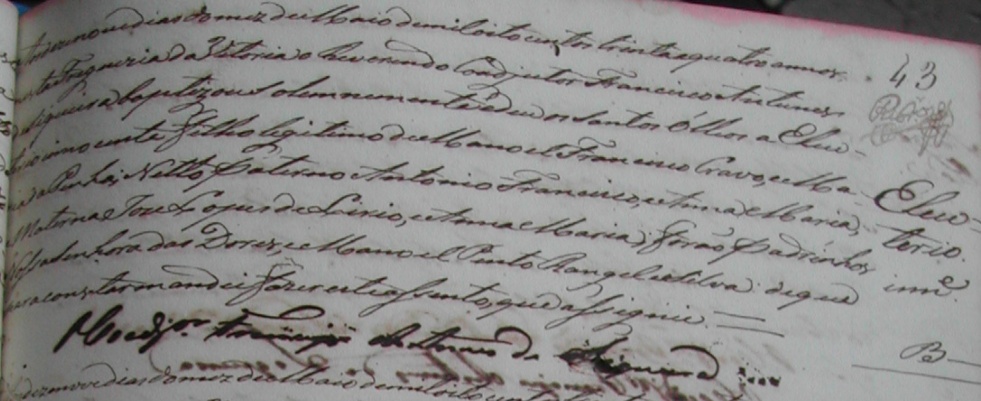 dias do mez de Maio de mil oito centos trinta e quatro annos
43
Freguezia da Vitoria o Reverendo Coadjutor Francisco Antunes
Siqueira baptizou solemnemente e deu os Santos Olleos a Eleu-
innocente filho legitimo de Manoel Francisco Cravo, e Ma-
Eleu-
da Penha, Netto Paterno Antonio Francisco, e Anna Maria,
terio.
Materna Jose Lopes de e Anna Maria; forão Padrinhos
inn.e
Senhora das Dores, e Manoel Pinto Rangel e Silva de que
para constar mandei fazer este assento, que assignei. =
O Coadj.or Francisco Antunes de Siqueira
B
dezenove dias do mez de Maio de mil oito